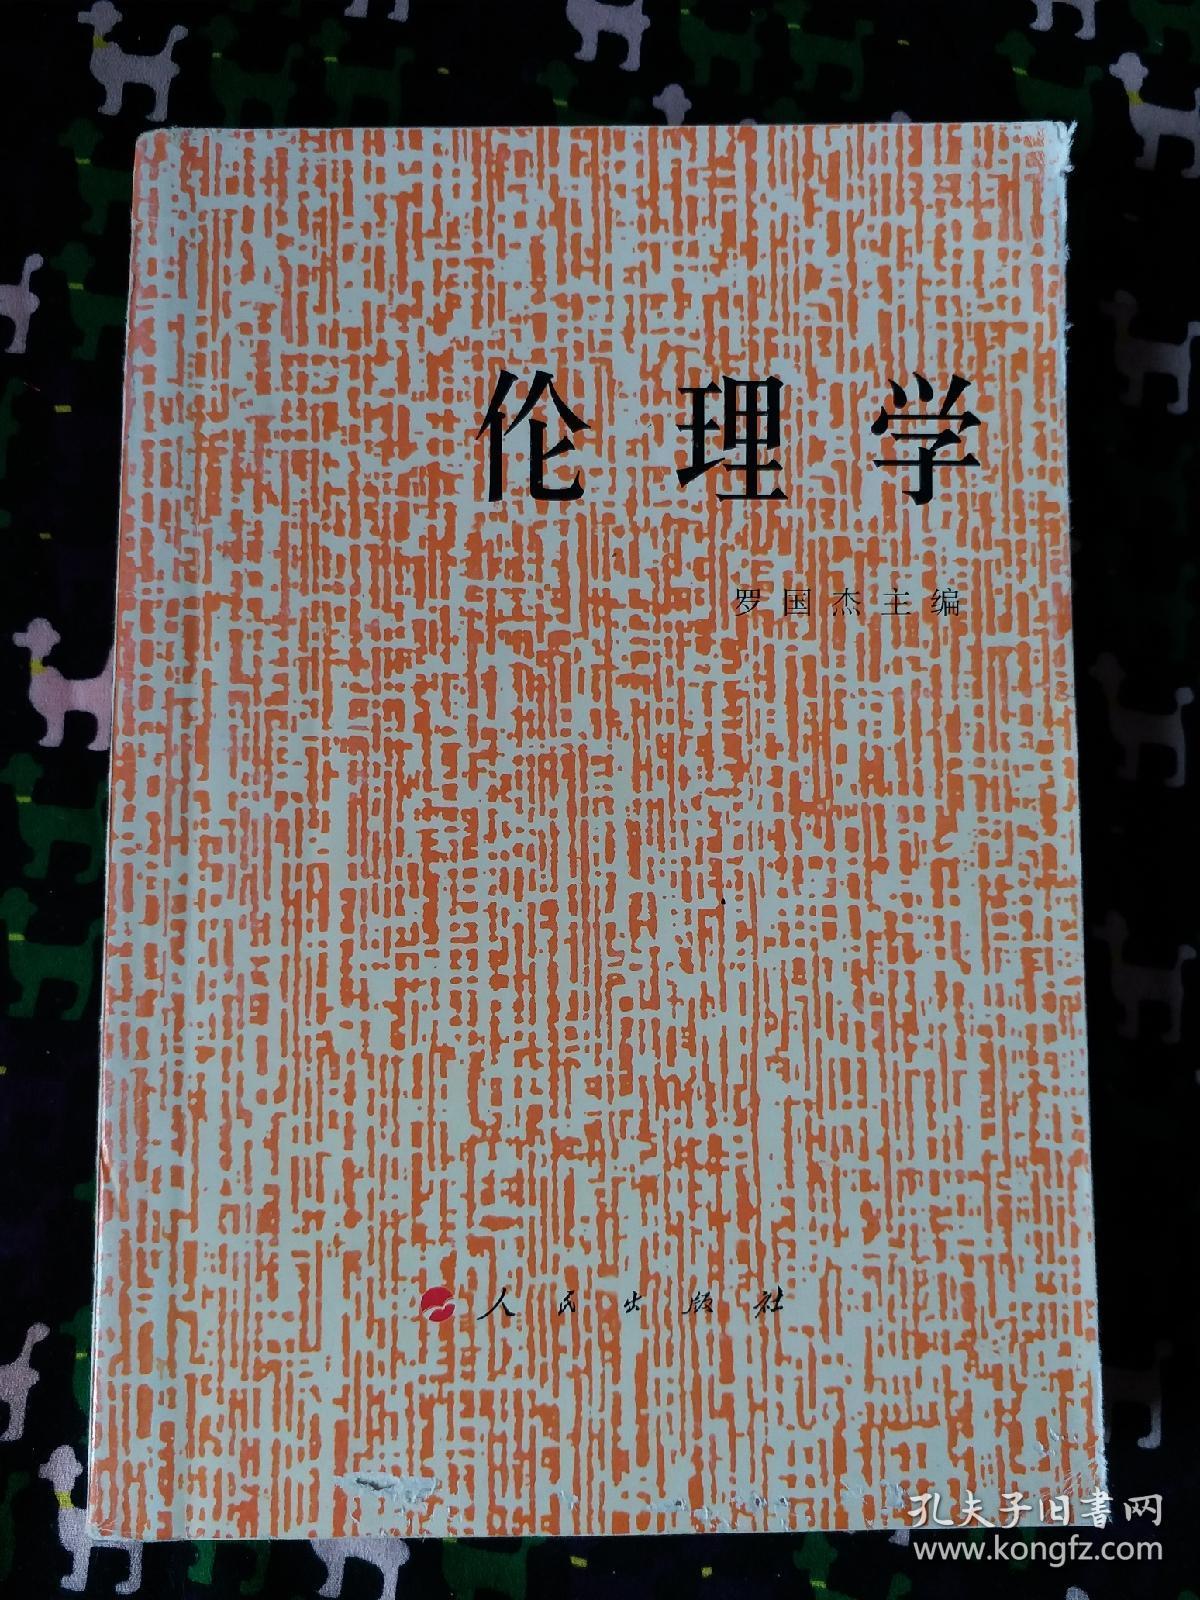 伦理学
罗国杰主编
人民出版社
孔夫子旧書网
www.kongfz.com